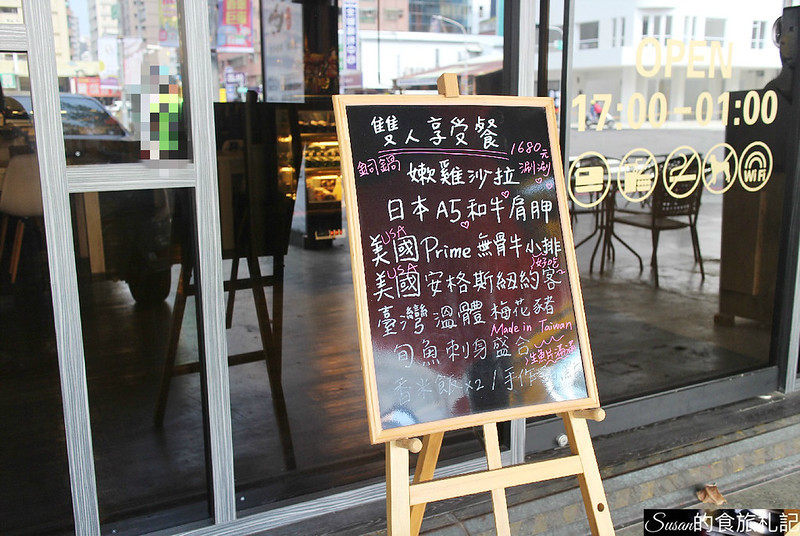 雙人享受餐
1680元
銅鍋
涮涮
嫩雞沙拉
日本A5和牛肩胛
USA
美國Prime無骨牛小排
USA
好吃
美國安格斯紐約客
臺灣溫體梅花豬
Made in Taiwan
旬魚刺身盛合
生魚片滿滿
香米飯x2/手作
OPEN
17:00-01:00
WiFi
Susan的食旅札記